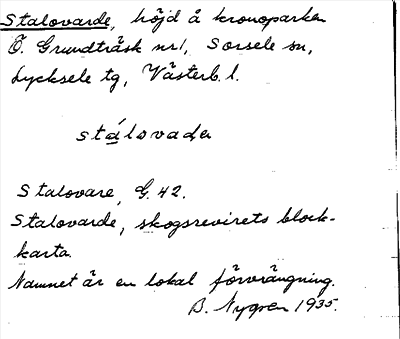 Stalovarde, höjd å kronoparken
Ö. Grundträsk nr 1, Sorsele sn,
Lycksele tg, Västerb. l.
stálovada
Stalovare, G. 42.
Stalovarde, skogsrevirets block-
karta.
Namnet är en lokal förvrängning.
B. Nygren 1935.